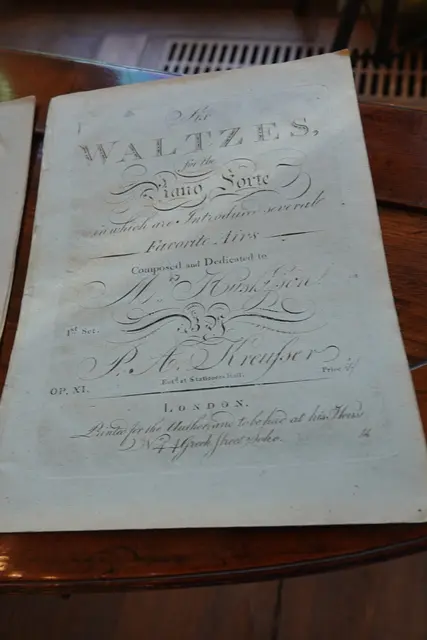 WALTZES,
for the
Piano Forte
in which are Introduced several
Favorite Airs
Composed and Dedicated to
1st Set.
BY
P. A. Kreusser
Ent.d at Stationers Hall.
Price
OP. XI.
LONDON.
Printed for the Author, and to be had at his House
Greek Street Soho.